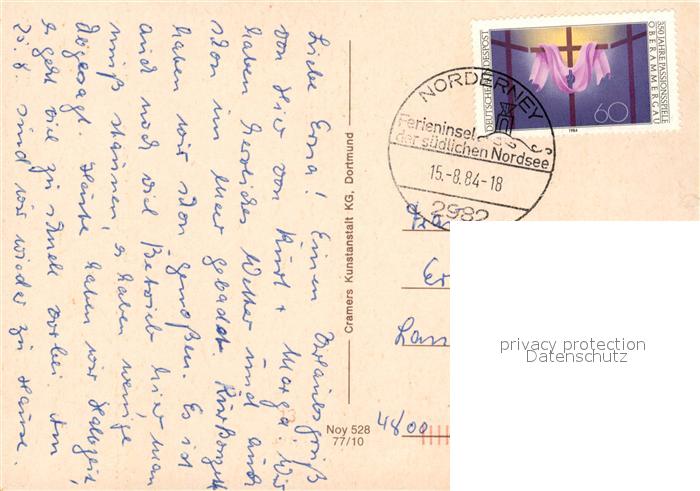 Liebe Erna! Einen Urlaubsgruß
von hier von Kurt + Marga. Wir
haben herrliches Wetter und auch
schon im Meer gebadet. Kurkonzert
haben wir schon genoßen. Es ist
auch noch viel Betrieb hier, man
muß staunen, es haben wenige
abgesagt. Heute haben wir Halbzeit,
es geht viel zu schnell vorbei. Am
25.8. sind wir wieder zu Hause.
Cramers Kunstanstalt KG, Dortmund
Noy 528
77/10
350 JAHRE PASSIONSSPIELE
OBERAMMERGAU
DEUTSCHE BUNDESPOST
60
1984
NORDERNEY
Ferieninsel
der südlichen Nordsee
15.-8.84-18
2982
Er
Lan
48/00
privacy protection
Datenschutz